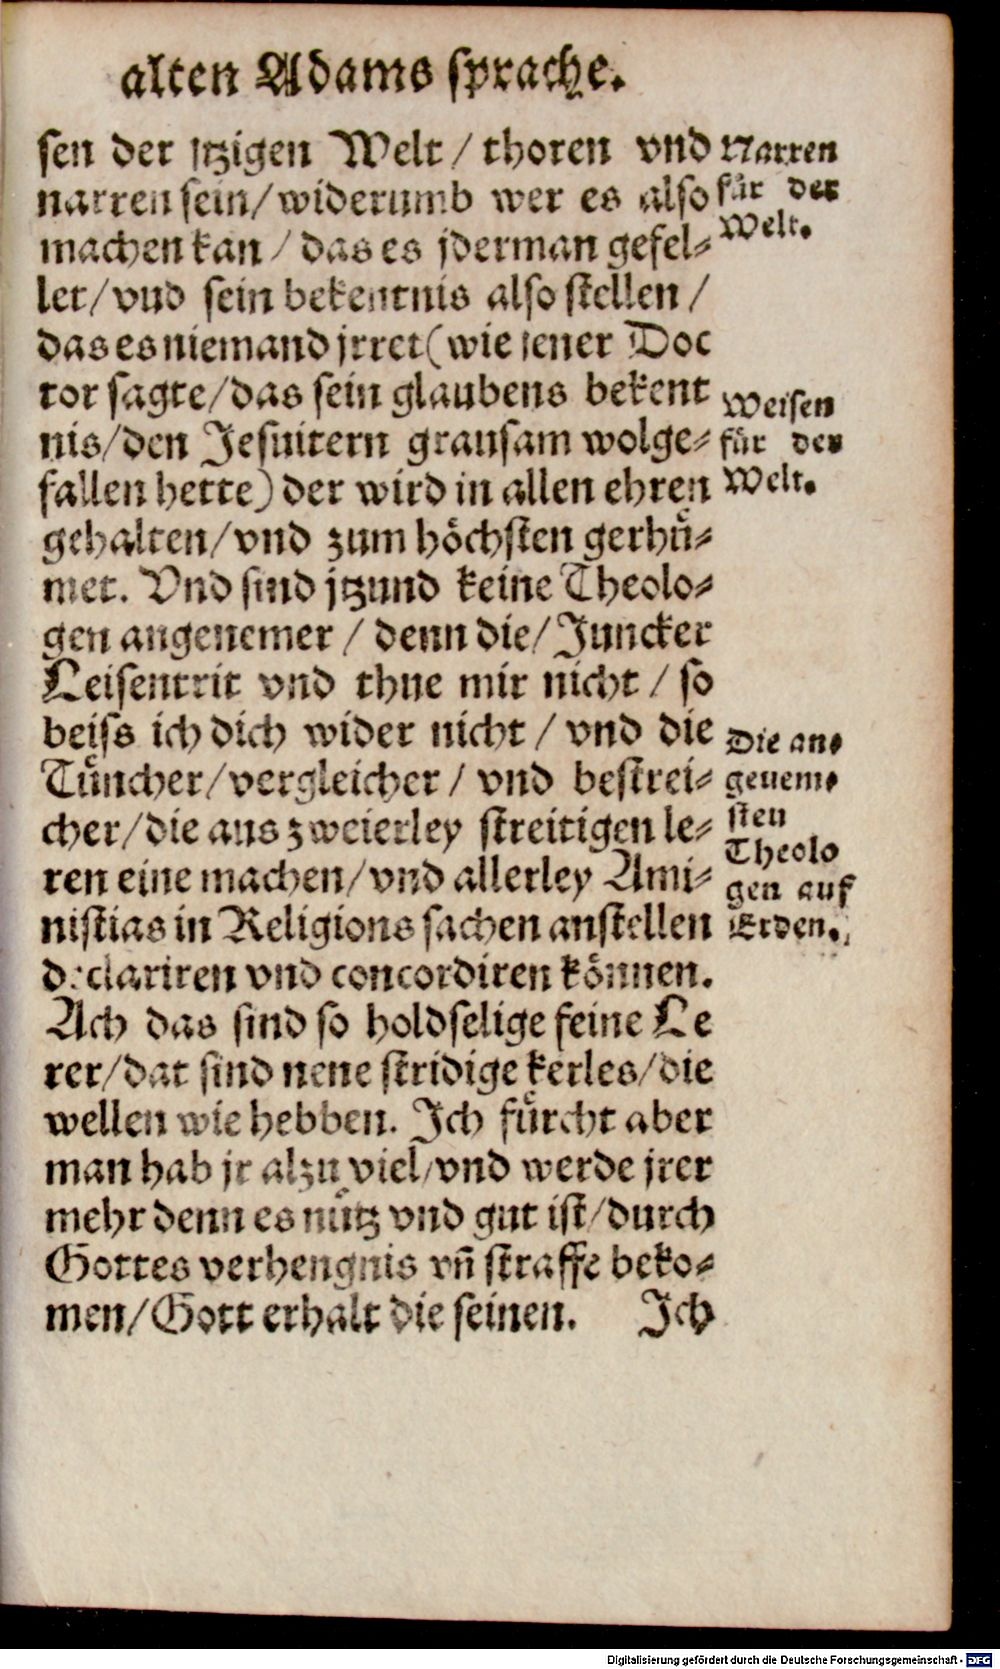 alten Adams sprache.
sen der jtzigen Welt / thoren vnd
narren sein / widerumb wer es also
machen kan / das es jderman gefel⸗
let / vnd sein bekentnis also stellen /
das es niemand jrret (wie jener Doc
tor sagte / das sein glaubens bekent
nis / den Jesuitern grausam wolge⸗
fallen hette) der wird in allen ehren
gehalten / vnd zum höchsten gerhü⸗
met. Vnd sind jtzund keine Theolo⸗
gen angenemer / denn die / Juncker
Leisentrit vnd thue mir nicht / so
beiss ich dich wider nicht / vnd die
Tüncher / vergleicher / vnd bestrei⸗
cher / die aus zweierley streitigen le⸗
ren eine machen / vnd allerley Ami⸗
nistias in Religions sachen anstellen
declariren vnd concordiren können.
Ach das sind so holdselige feine Le
rer / dat sind nene stridige kerles / die
wellen wie hebben. Ich fürcht aber
man hab jr alzu viel / vnd werde jrer
mehr denn es nütz vnd gut ist / durch
Gottes verhengnis vñ straffe beko⸗
men / Gott erhalt die seinen. Ich
Narren
für der
Welt.
Weisen
für der
Welt.
Die an⸗
genem⸗
sten
Theolo
gen auf
Erden.
Digitalisierung gefördert durch die Deutsche Forschungsgemeinschaft - DFG